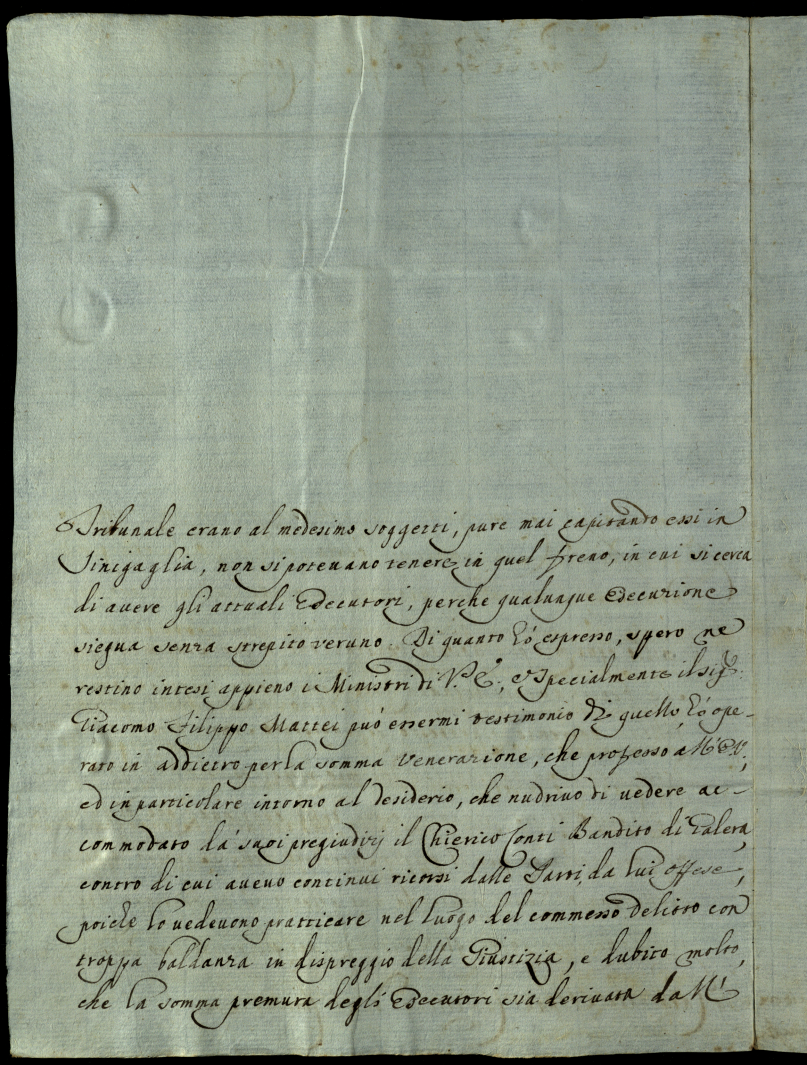 Tribunale erano al medesimo soggetti, pure mai capitando essi in
Sinigaglia, non si poteuano tenere in quel freno, in cui si cerca
di auere gli attuali Esecutori, perche qualunque esecuzione
siegua senza strepito veruno. Di quanto hò espresso, spero ne
restino intesi appieno i Ministri di V. E., e specialmente il Sig.
Giacomo Filippo Mattei può essermi testimonio di quello, hò ope-
rato in addietro per la somma venerazione, che professo a
ed in particolare intorno al desiderio, che nudriuo di uedere ac-
commodato da' suoi pregiudizij il Chierico Conti Bandito di Galera,
contro di cui aueuo continui ricorsi dalle Parti da lui offese,
poiche lo uedeuono pratticare nel luogo del commesso delitto con
troppa baldanza in dispreggio della Giustizia, e dubito molto,
che la somma premura degli Esecutori sia deriuata da